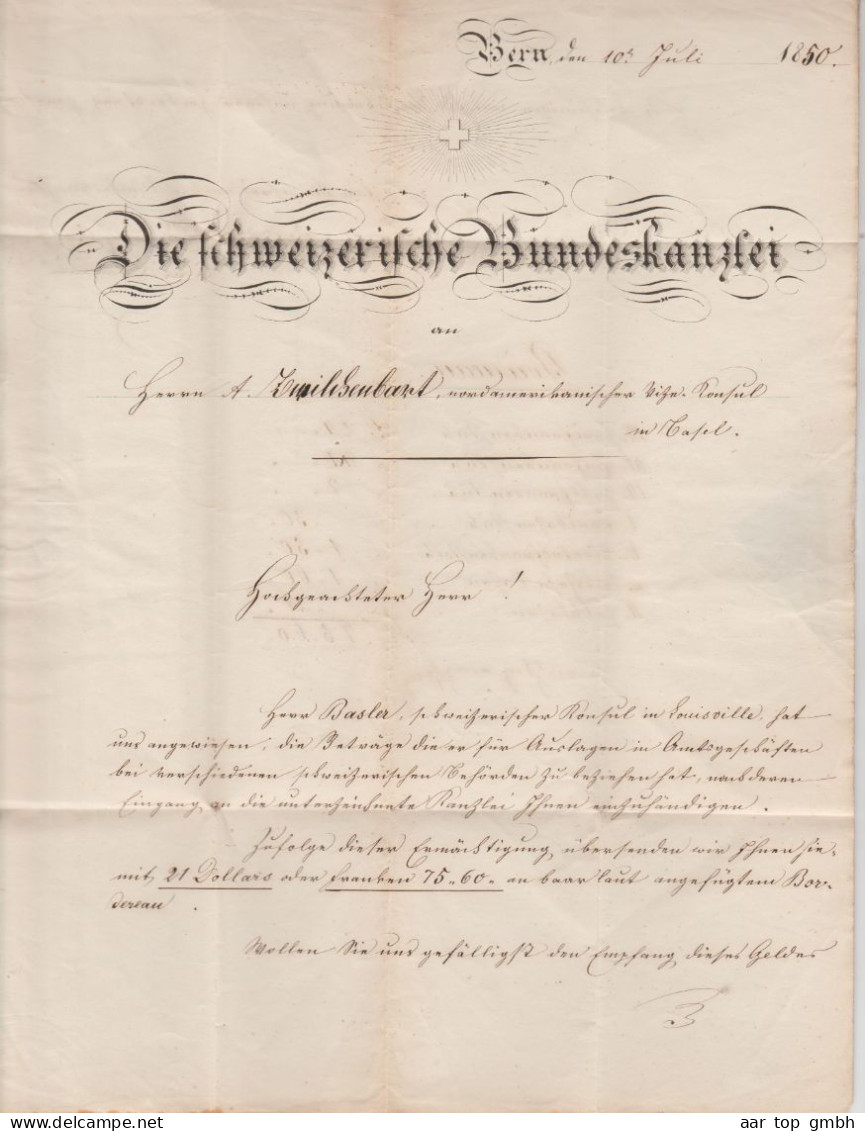 Bern, den 10n Juli 1850.
Die schweizerische Bundeskanzlei
an
Herrn A. Zwilchenbart, nordamerikanischer Vize-Konsul
in Basel.
Hochgeachteter Herr!
Herr Basler, schweizerischer Konsul in Louisville, hat
uns angewiesen, die Beträge die er für Auslagen in Amtsgeschäften
bei verschiedenen schweizerischen Behörden zu beziehen hat, nach deren
Eingang an die unterzeichnete Kanzlei Ihnen einzuhändigen.
Zufolge dieser Ermächtigung übersenden wir Ihnen hie-
mit 21 Dollars oder Franken 75 „ 60 „ an baar laut angefügtem Bor-
dereau.
Wollen Sie uns gefälligst den Empfang dieses Geldes
aar top gmbh